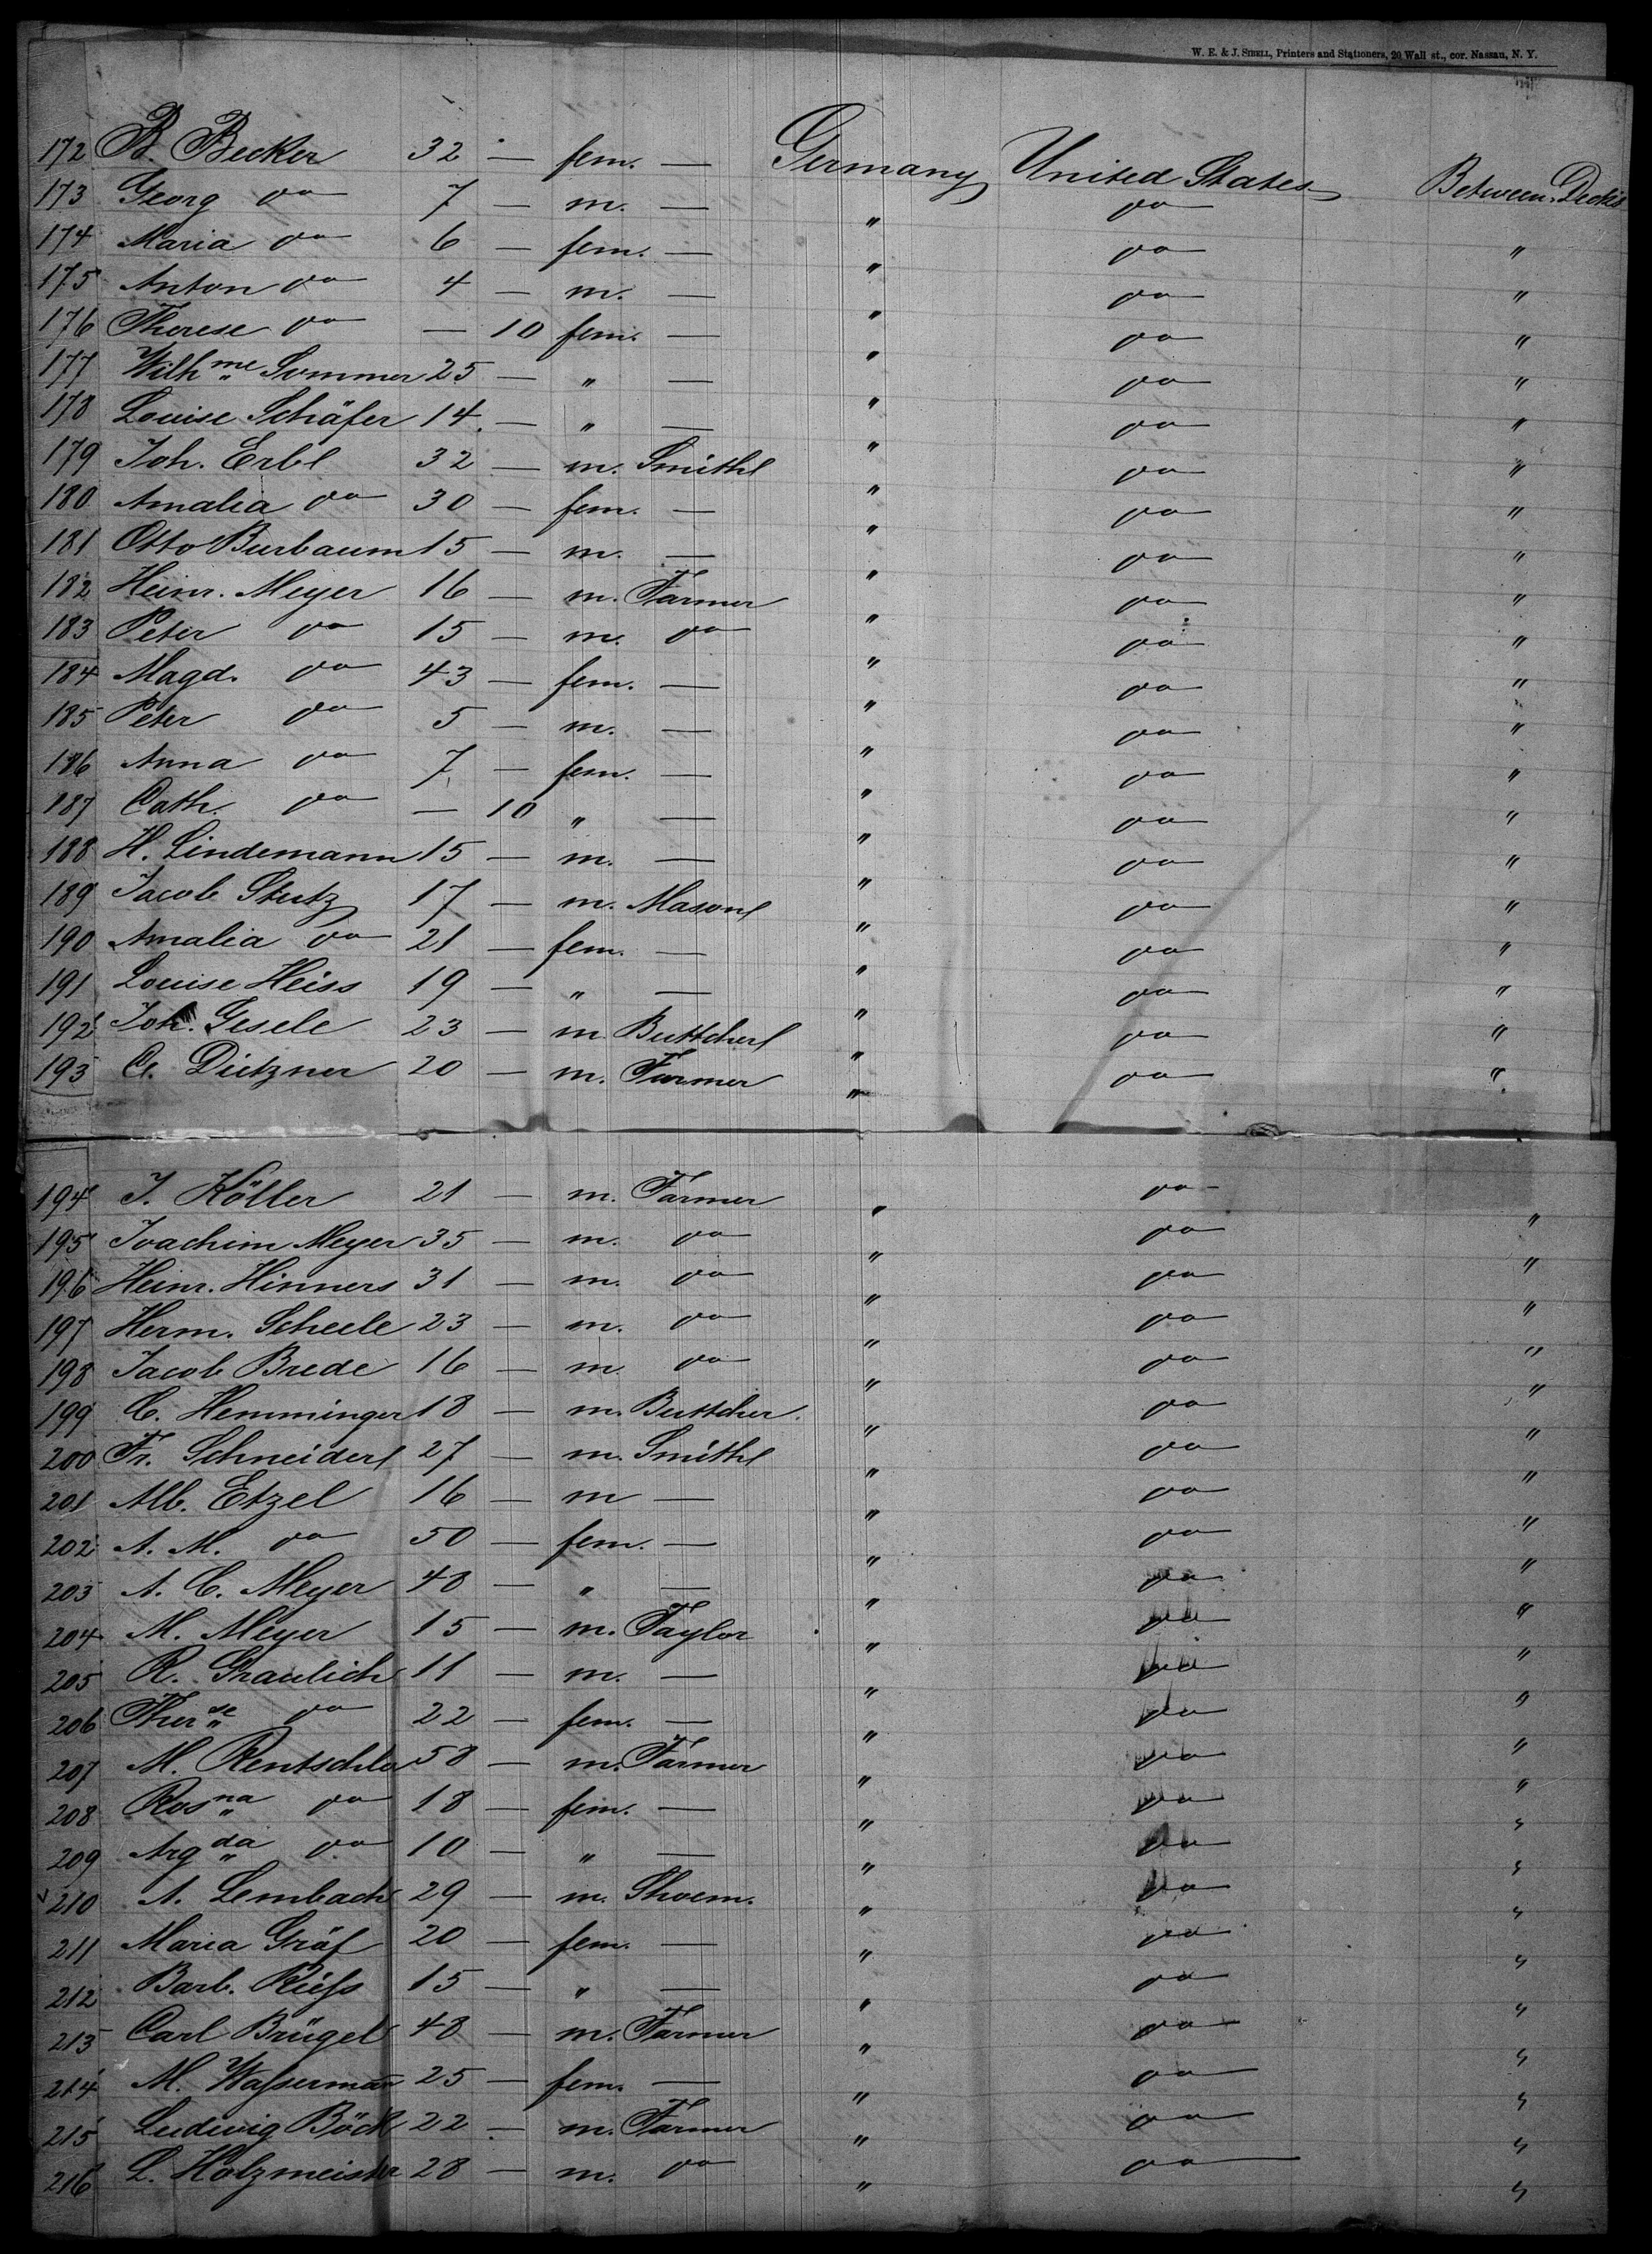 W. E. & J. SIBELL, Printers and Stationers, 20 Wall st., cor. Nassau, N. Y.
172 B. Becker 32 — fem. — Germany United States Between Decks
173 Georg do 7 — m. — " do
174 Maria do 6 — fem. — " do "
175 Anton do 4 — m. — " do "
176 Therese do — 10 fem. — " do "
177 Wilhme Sommer 25 — " — " do "
178 Louise Schäfer 14. — " — " do "
179 Joh. Erbl 32 — m. Smith " do "
180 Amalia do 30 — fem. — " do "
181 Otto Burbaum 15 — m. — " do "
182 Heinr. Meyer 16 — m. Farmer " do "
183 Peter do 15 — m. do " do "
184 Magd. do 43 — fem. — " do "
185 Peter do 5 — m. — " do "
186 Anna do 7 — fem. — " do "
187 Cath. do — 10 " — " do "
188 H. Lindemann 15 — m. — " do "
189 Jacob Stutz 17 — m. Mason " do "
190 Amalia do 21 — fem. — " do "
191 Louise Heiss 19 — " — " do "
192 Joh. Gesele 23 — m Buttcher " do "
193 C. Dietzner 20 — m. Farmer " do "
194 J. Köller 21 — m. Farmer " do "
195 Joachim Meyer 35 — m. do " do "
196 Heinr. Hinners 31 — m. do " do "
197 Herm. Scheele 23 — m. do " do "
198 Jacob Brede 16 — m. do " do "
199 C. Hemminger 18 — m. Buttcher. " do "
200 Fr. Schneider 27 — m. Smith " do "
201 Alb. Etzel 16 — m — " do "
202 A. M. do 50 — fem. — " do "
203 A. C. Meyer 48 — " — " do "
204 M. Meyer 15 — m. Taylor " do "
205 R. Graulich 11 — m. — " do "
206 Therse do 22 — fem. — " do "
207 M. Rentschler 58 — m. Farmer " do "
208 Rosna do 18 — fem. — " do "
209 Argda do 10 — " — " do "
210 A. Lembach 29 — m. Shoem. " do "
211 Maria Gräf 20 — fem. — " do "
212 Barb. Rieſs 15 — " — " do "
213 Carl Brügel 48 — m. Farmer " do "
214 M. Waſserman̄ 25 — fem. — " do "
215 Ludwig Böck 22 — m. Farmer " do "
216 L. Holzmeister 28 — m. do " do "